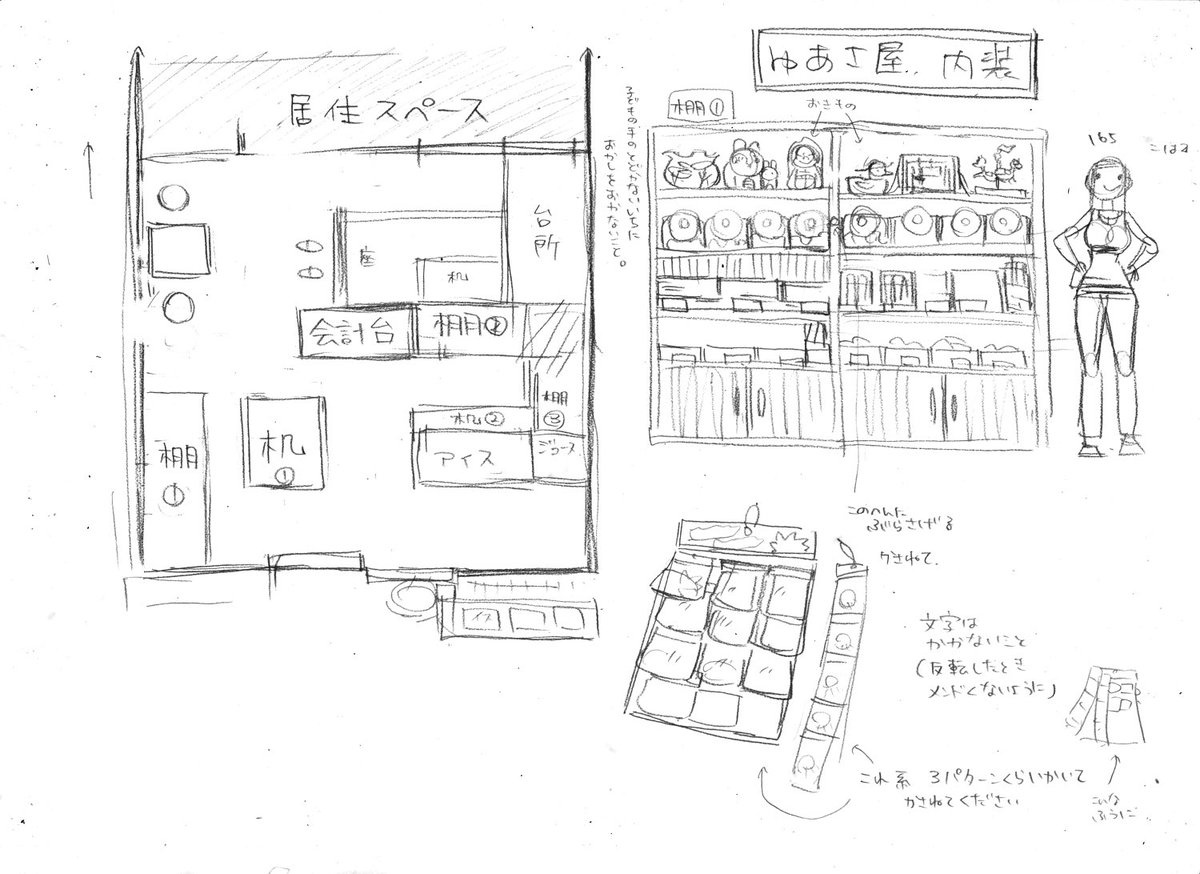 居住スペース
台所
座
机
会計台
棚②
棚③
机②
アイス
棚①
机①
ゆあさ屋 内装
棚①
おきもの
子どもの手のとどかないいちに
おかしをおかないこと。
165
このへんに
ぶらさげる
かさねて
文字は
かかないこと
(反転したとき
メンドくないように)
これ系 3パターンくらいかいて
かさねてください
こんな
ふうに